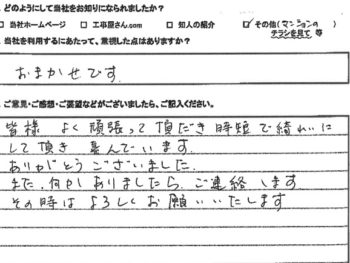 どのようにして当社をお知りになられましたか?
□ 当社ホームページ □ 工事屋さん.com □ 知人の紹介 ☑ その他(マンションのチラシを見て 等)
当社を利用するにあたって、重視した点はありますか?
おまかせです。
ご意見・ご感想・ご要望などがございましたら、ご記入ください。
皆様 よく頑張って頂だき 時短で綺れいに
して頂き 喜んでいます。
ありがとうございました。
また、何かありましたら、ご連絡します
その時は よろしくお願いいたします